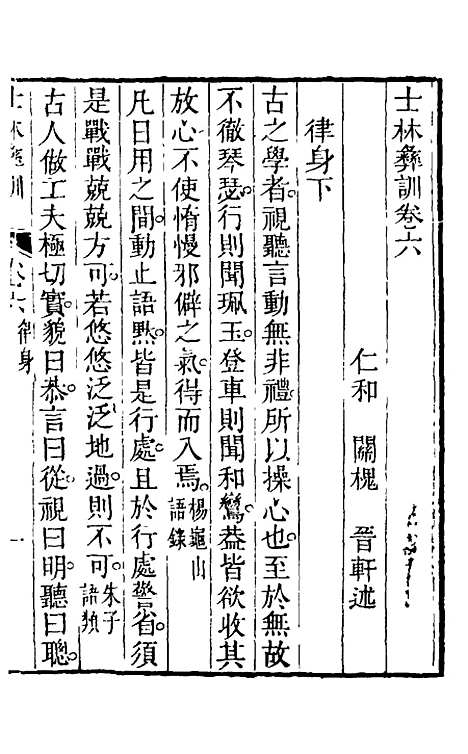 士林彝訓卷六
仁和　關槐　晉軒述
律身下
古之學者。視聽言動無非禮。所以操心也。至於無故
不徹琴瑟。行則聞珮玉。登車則聞和鸞。葢皆欲收其
放心不使惰慢邪僻之氣。得而入焉。楊龜山語錄
凡日用之間。動止語默。皆是行處。且於行處警省。須
是戰戰兢兢方可。若悠悠泛泛地過。則不可。朱子語類
古人做工夫極切實。貌曰恭。言曰從。視曰明。聽曰聰。
士林彝訓　卷六　律身　一